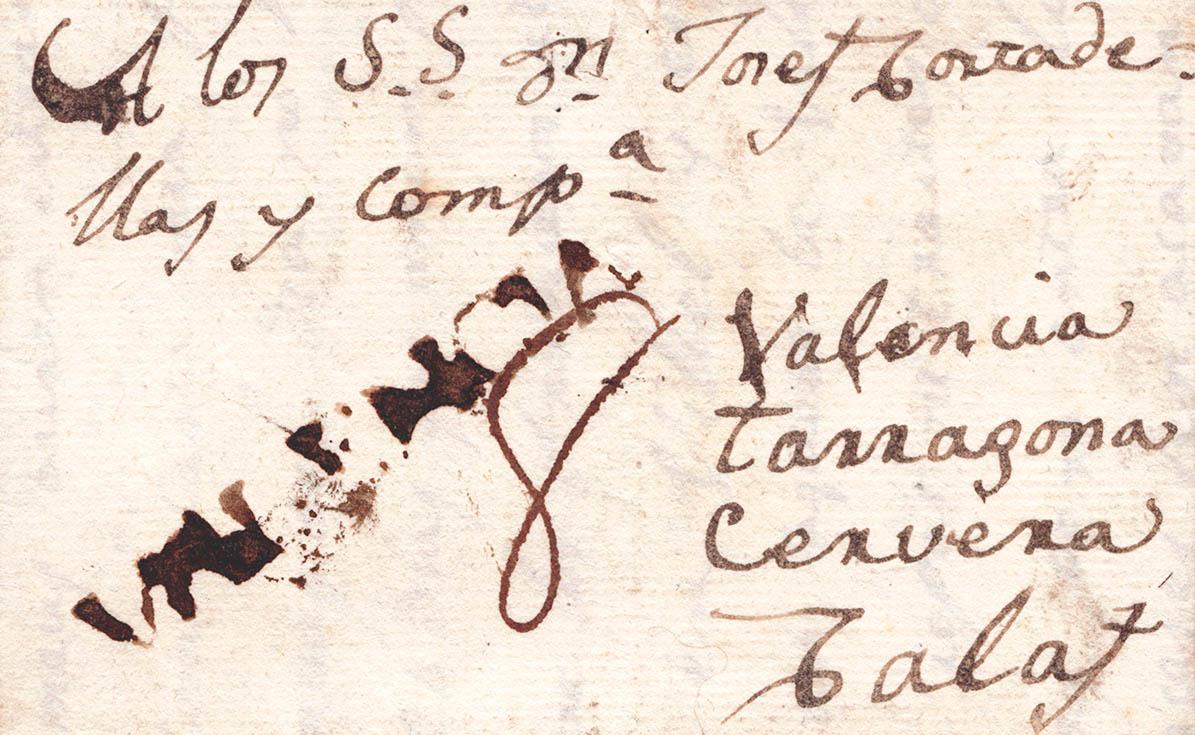 A los S.S. Dn Josef Cortade-
llas y compa
8
Valencia
Tarragona
Cervera
Calaf